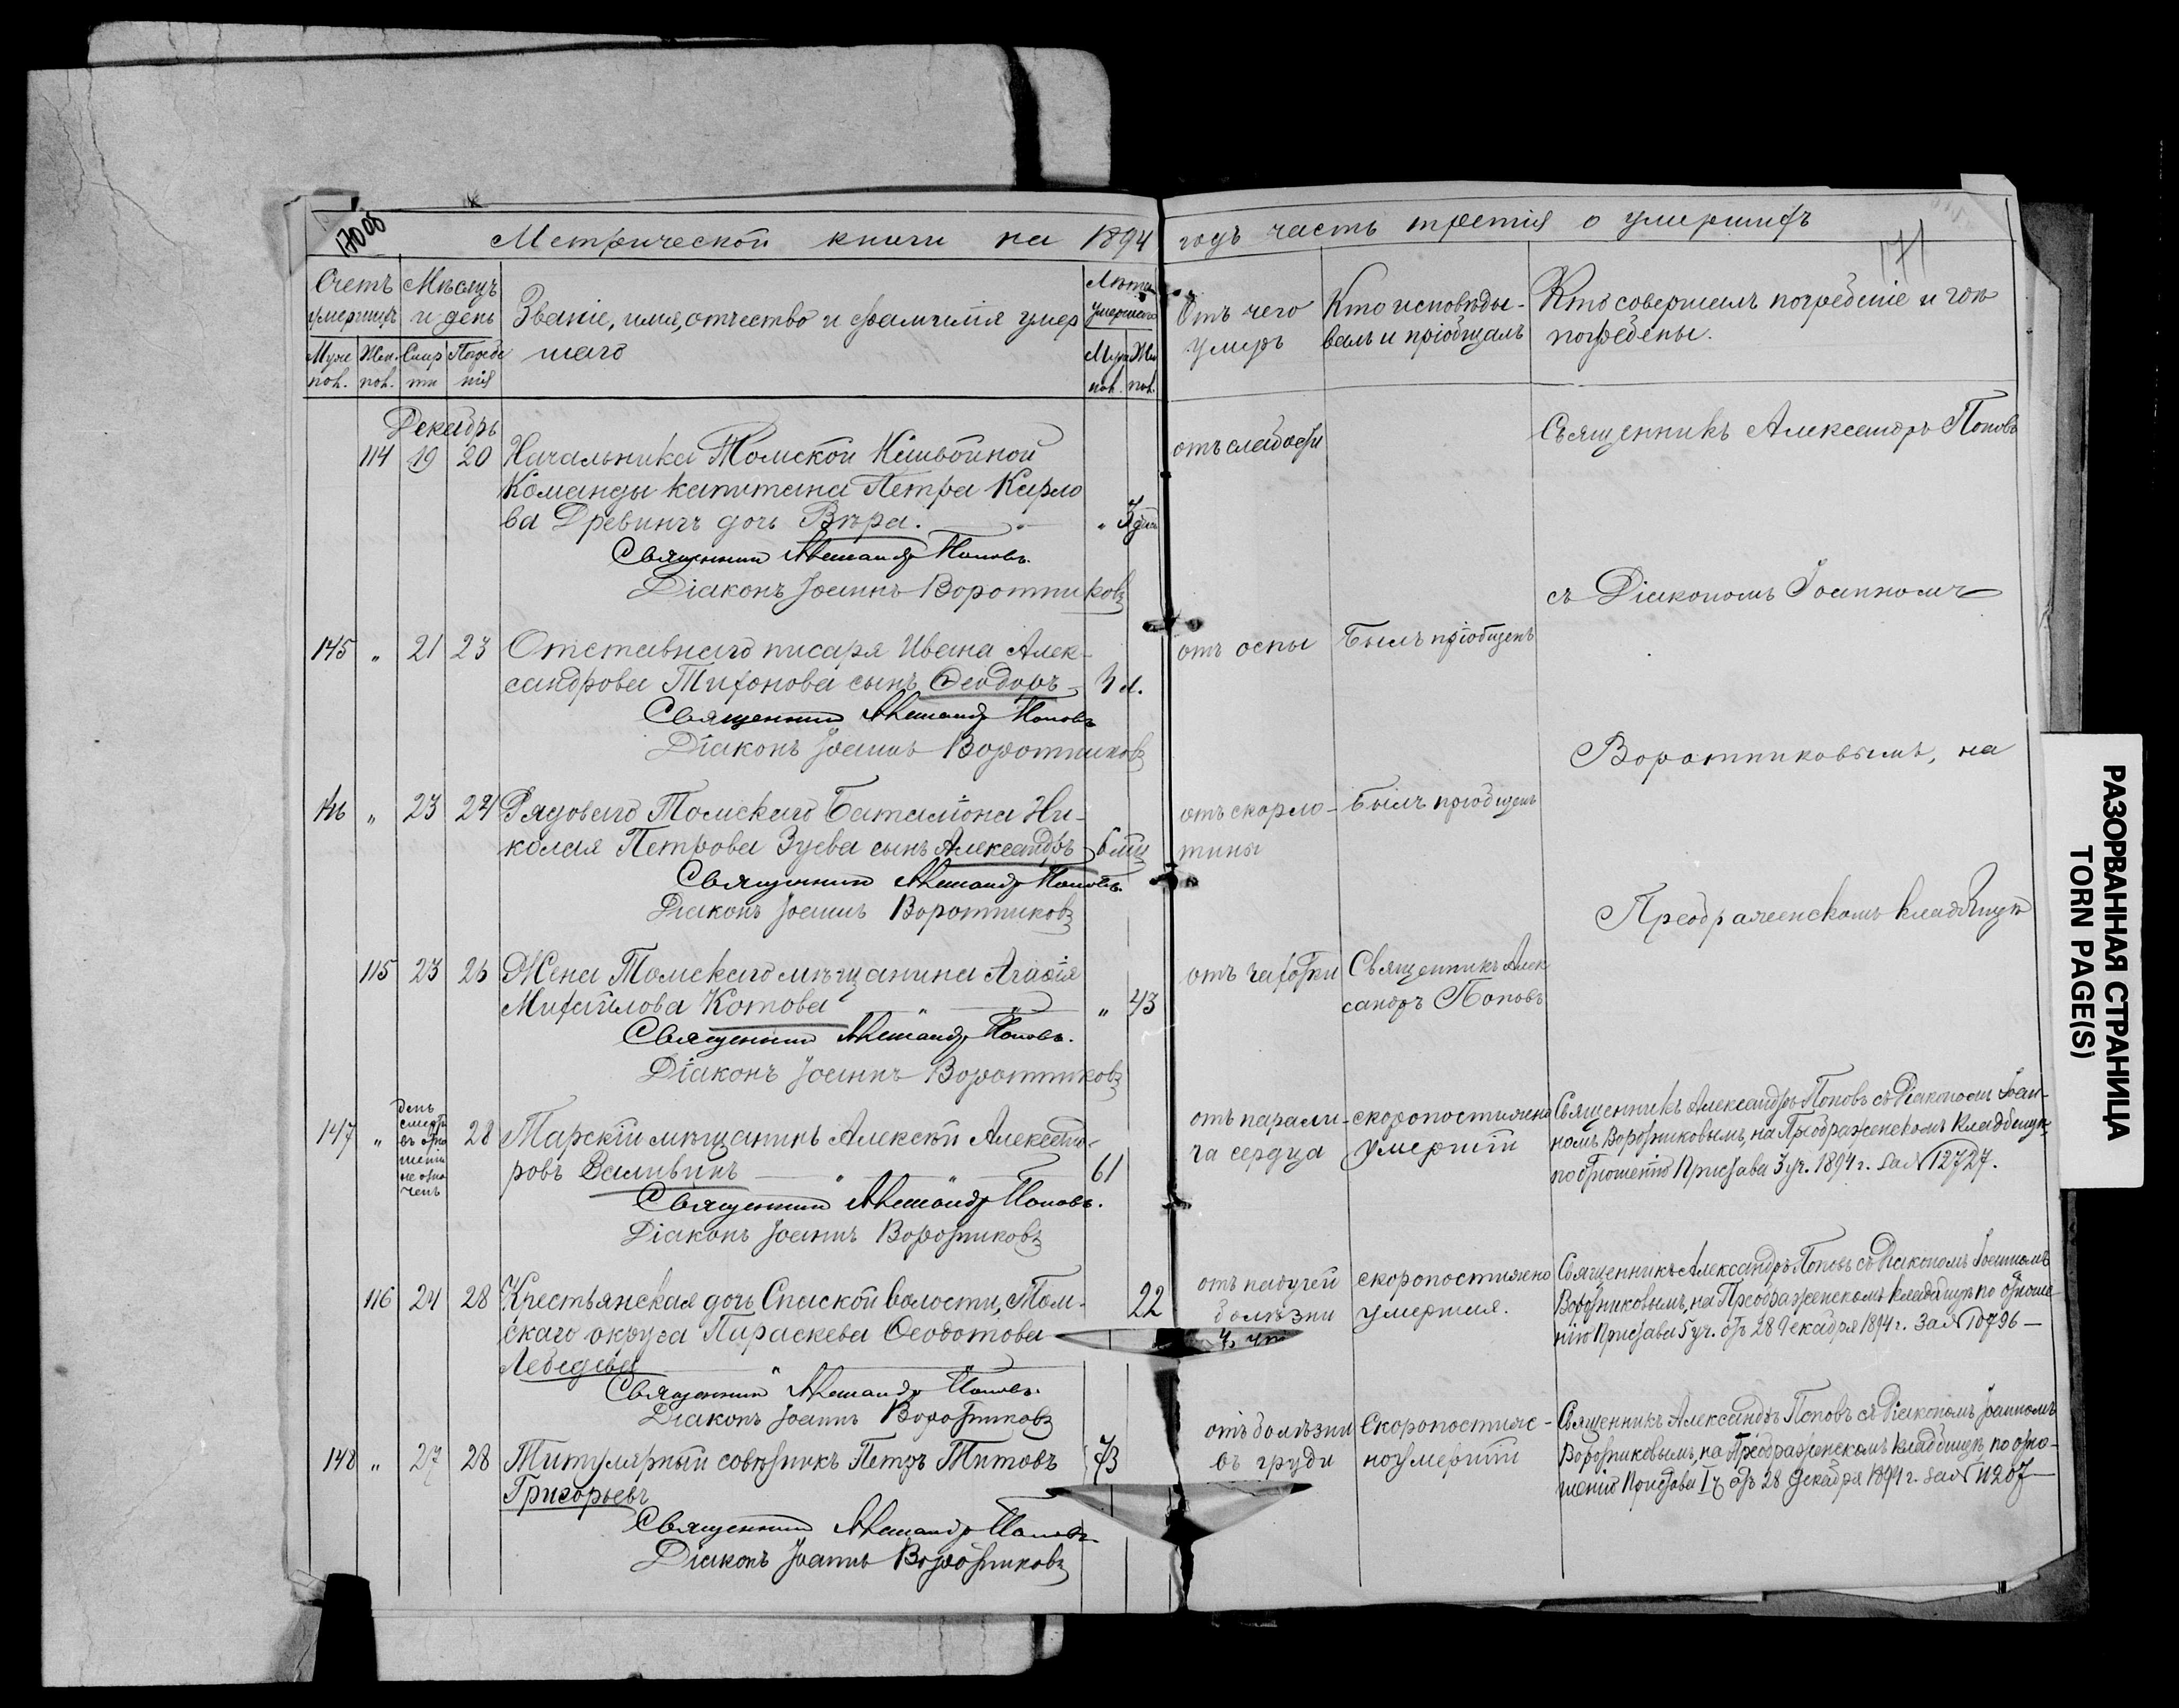 170 об
171
Метрической книги на 1894 годъ часть третія о умершихъ
Счетъ умершихъ
Муже пол.
Жен. пол.
Мѣсяцъ и день
Смер ти
Погребе нія
Званіе, имя, отчество и фамилія умер
шаго
Лѣта умершаго
Муж пол.
Же пол.
Отъ чего умеръ
Кто исповѣды-
валъ и пріобщалъ
Кто совершалъ погребеніе и гдѣ
погребены.
Декабрь
114 19 20 Начальника Томской Конвойной
Команды капитана Петра Карло
ва Древингъ дочь Вѣра. „
отъ слабости
Священникъ Александръ Поповъ
Священникъ Александръ Поповъ.
Діаконъ Іоаннъ Воротниковъ
съ Діакономъ Іоанномъ
145 „ 21 23 Отставнаго писаря Ивана Алек-
сандрова Тихонова сынъ Ѳеодоръ 3 л.
отъ оспы
Былъ пріобщенъ
Священникъ Александръ Поповъ
Діаконъ Іоаннъ Воротниковъ
Воротниковымъ, на
146 „ 23 24 Рядоваго Томскаго Баталіона Ни-
колая Петрова Зуева сынъ Александръ 6 мѣц
отъ скорло-
тины
Былъ пріобщенъ
Священникъ Александръ Поповъ.
Діаконъ Іоаннъ Воротниковъ
Преображенскомъ кладбищѣ
115 23 26 Жена Томскаго мѣщанина Агафія
Михайлова Котова „ 43
отъ чахотки
Священникъ Алек
сандръ Поповъ
Священникъ Александръ Поповъ.
Діаконъ Іоаннъ Воротниковъ
147 „
день
смерти
въ отно
шеніи
не озна
ченъ
28 Тарскій мѣщанинъ Алексѣй
ровъ 61
отъ парали-
ча сердца
скоропостижно
умершій
Священникъ Александръ Поповъ съ Діакономъ Іоан-
номъ Воротниковымъ, на Преображенскомъ кладбищѣ,
по отношенію Пристава 3 уч. 1894 г. за № 12727.
Священникъ Александръ Поповъ.
Діаконъ Іоаннъ Воротниковъ
116 24 28 Крестьянская дочь Спаской волости, Том-
скаго округа Параскева Ѳеодотова
Лебедева 22
отъ падучей
болѣзни
скоропостижно
умершая.
Священникъ Александръ Поповъ съ Діакономъ Іоанномъ
Воротниковымъ, на Преображенскомъ кладбищѣ по отноше-
нію Пристава 5 уч. отъ 28 Декабря 1894 г. за № 10796
Священникъ Александръ Поповъ.
Діаконъ Іоаннъ Воротниковъ
148 „ 27 28 Титулярный совѣтникъ Петръ Титовъ 73
Григорьевъ
отъ болѣзни
въ груди
Скоропостиж-
но умершій
Священникъ Александръ Поповъ съ Діакономъ Іоанномъ
Воротниковымъ, на Преображенскомъ кладбищѣ, по отно-
шенію Пристава отъ 28 Декабря 1894 г. за № 11207
Священникъ Александръ Поповъ
Діаконъ Іоаннъ Воротниковъ
РАЗОРВАННАЯ СТРАНИЦА
TORN PAGE(S)